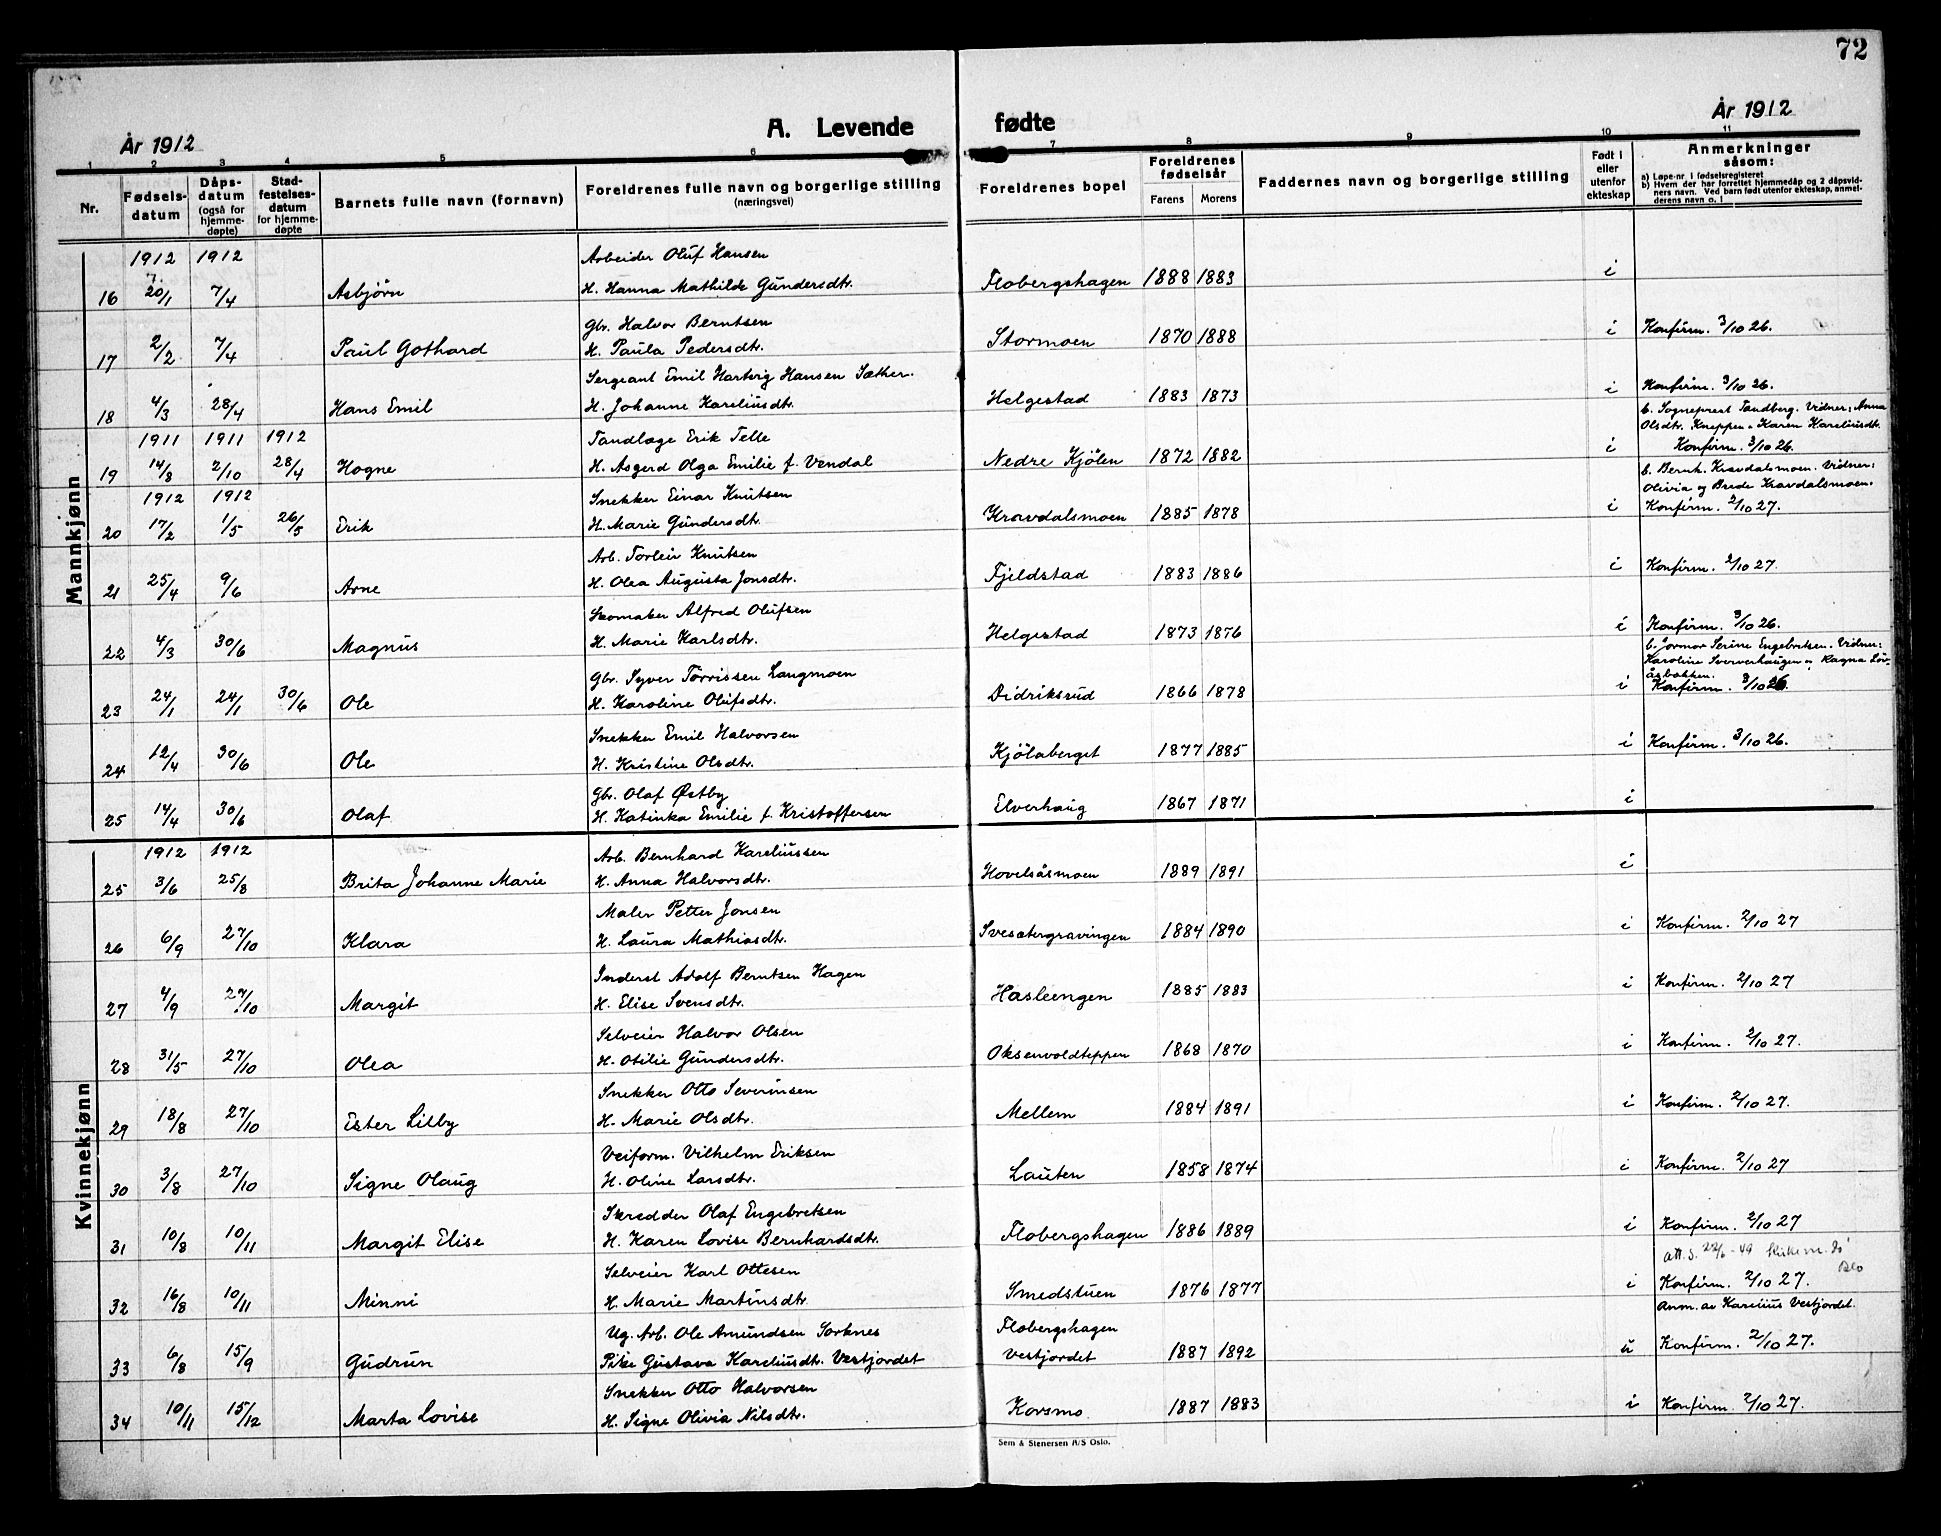 72
År 1912 A. Levende fødte År 1912
1 2 3 4 5 6 7 8 9 10 11
Nr. Fødsels-datum Dåps-datum (også for hjemme-døpte) Stad-festelses-datum for hjemme-døpte Barnets fulle navn (fornavn) Foreldrenes fulle navn og borgerlige stilling (næringsvei) Foreldrenes bopel Foreldrenes fødselsår Farens Morens Faddernes navn og borgerlige stilling Født i eller utenfor ekteskap Anmerkninger såsom:
a) Løpe-nr. i fødselsregisteret
b) Hvem der har forrettet hjemmedåp og 2 dåpsvidners navn. Ved barn født utenfor ekteskap, anmelderens navn o. l
Mannkjønn
1912 1912 Arbeider Oluf Hansen
16 20/1 7/4 Asbjørn H. Hanna Mathilde Gundersdtr. Flobergshagen 1888 1883 i
Gbr. Halvor Berntsen
17 2/2 7/4 Paul Gothard H. Paula Pedersdtr. Stormoen 1870 1888 i Konfirm. 3/10 26.
Sergeant Emil Hartvig Hansen Sæther.
18 4/3 28/4 Hans Emil H. Johanne Kareliusdtr. Helgestad 1883 1873 i Konfirm. 3/10 26.
b. Sogneprest Tandberg. Vidner: Anna
Olsdtr. Kneppen o Karen Kareliusdtr.
1911 1911 1912 Tandlæge Erik Telle
19 14/8 2/10 28/4 Hogne H. Asgerd Olga Emilie f. Vendal Nedre Kjølen 1872 1882 i Konfirm. 3/10 26.
b. Bernh. Kravdalsmoen. Vidner:
Olivia og Brede Kravdalsmoen.
1912 1912 Snekker Einar Knutsen
20 17/2 1/5 26/5 Erik H. Marie Gundersdtr. Kravdalsmoen 1885 1878 i Konfirm. 2/10 27.
Arb. Torleir Knutsen
21 25/4 9/6 Arne H. Olea Augusta Jonsdtr. Fjeldstad 1883 1886 i Konfirm. 2/10 27.
Skomaker Alfred Olufsen
22 4/3 30/6 Magnus H. Marie Karlsdtr. Helgestad 1873 1876 i Konfirm. 3/10 26.
b. Jormor Serine Engebretsen. Vidner:
Karoline Sververhaugen o. Ragna Løv-
åsbakken.
Gbr. Syver Torrissen Langmoen
23 24/1 24/1 30/6 Ole H. Karoline Olufsdtr. Didriksrud 1866 1878 i Konfirm. 3/10 26.
Snekker Emil Halvorsen
24 12/4 30/6 Ole H. Kristine Olsdtr. Kjølaberget 1877 1885 i Konfirm. 3/10 26.
Gbr. Olaf Østby
25 14/4 30/6 Olaf H. Katinka Emilie f. Kristoffersen Elverhaug 1867 1871 i
Kvinnekjønn
1912 1912 Arb. Bernhard Kareliussen
25 3/6 25/8 Brita Johanne Marie H. Anna Halvorsdtr. Hovelsåsmoen 1889 1891 i
Maler Petter Jonsen
26 6/9 27/10 Klara H. Laura Mathiasdtr. Svesætergravingen 1884 1890 i Konfirm. 2/10 27
Inderst Adolf Berntsen Hagen
27 4/9 27/10 Margit H. Elise Svensdtr. Hasleengen 1885 1883 i Konfirm. 2/10 27
Selveier Halvor Olsen
28 31/5 27/10 Olea H. Otilie Gundersdtr. Oksenvoldteppen 1868 1870 i Konfirm. 2/10 27.
Snekker Otto Severinsen
29 18/8 27/10 Ester Lilby H. Marie Olsdtr. Mellem 1884 1891 i Konfirm. 2/10 27.
Veiform. Vilhelm Eriksen
30 3/8 27/10 Signe Olaug H. Oline Larsdtr. Lauten 1858 1874 i Konfirm. 2/10 27
Skredder Olaf Engebretsen
31 10/8 10/11 Margit Elise H. Karen Lovise Bernhardsdtr. Flobergshagen 1886 1889 i Konfirm. 2/10 27
Att. S. 22/6 - 49
Selveier Karl Ottesen
32 16/8 10/11 Minni H. Marie Martinsdtr. Smedstuen 1876 1877 i Konfirm. 2/10 27.
Anm. av Karelius Vestjordet.
Ug. Arb. Ole Amundsen Sorknes Flobergshagen
33 6/8 15/9 Gudrun Pike Gustava Kareliusdtr. Vestjordet Vestjordet 1887 1892 u Konfirm. 2/10 27.
Snekker Otto Halvorsen
34 10/11 15/12 Marta Lovise H. Signe Olivia Nilsdtr. Korsmo 1887 1883 i Konfirm. 2/10 27.
Sem & Stenersen A/S Oslo.